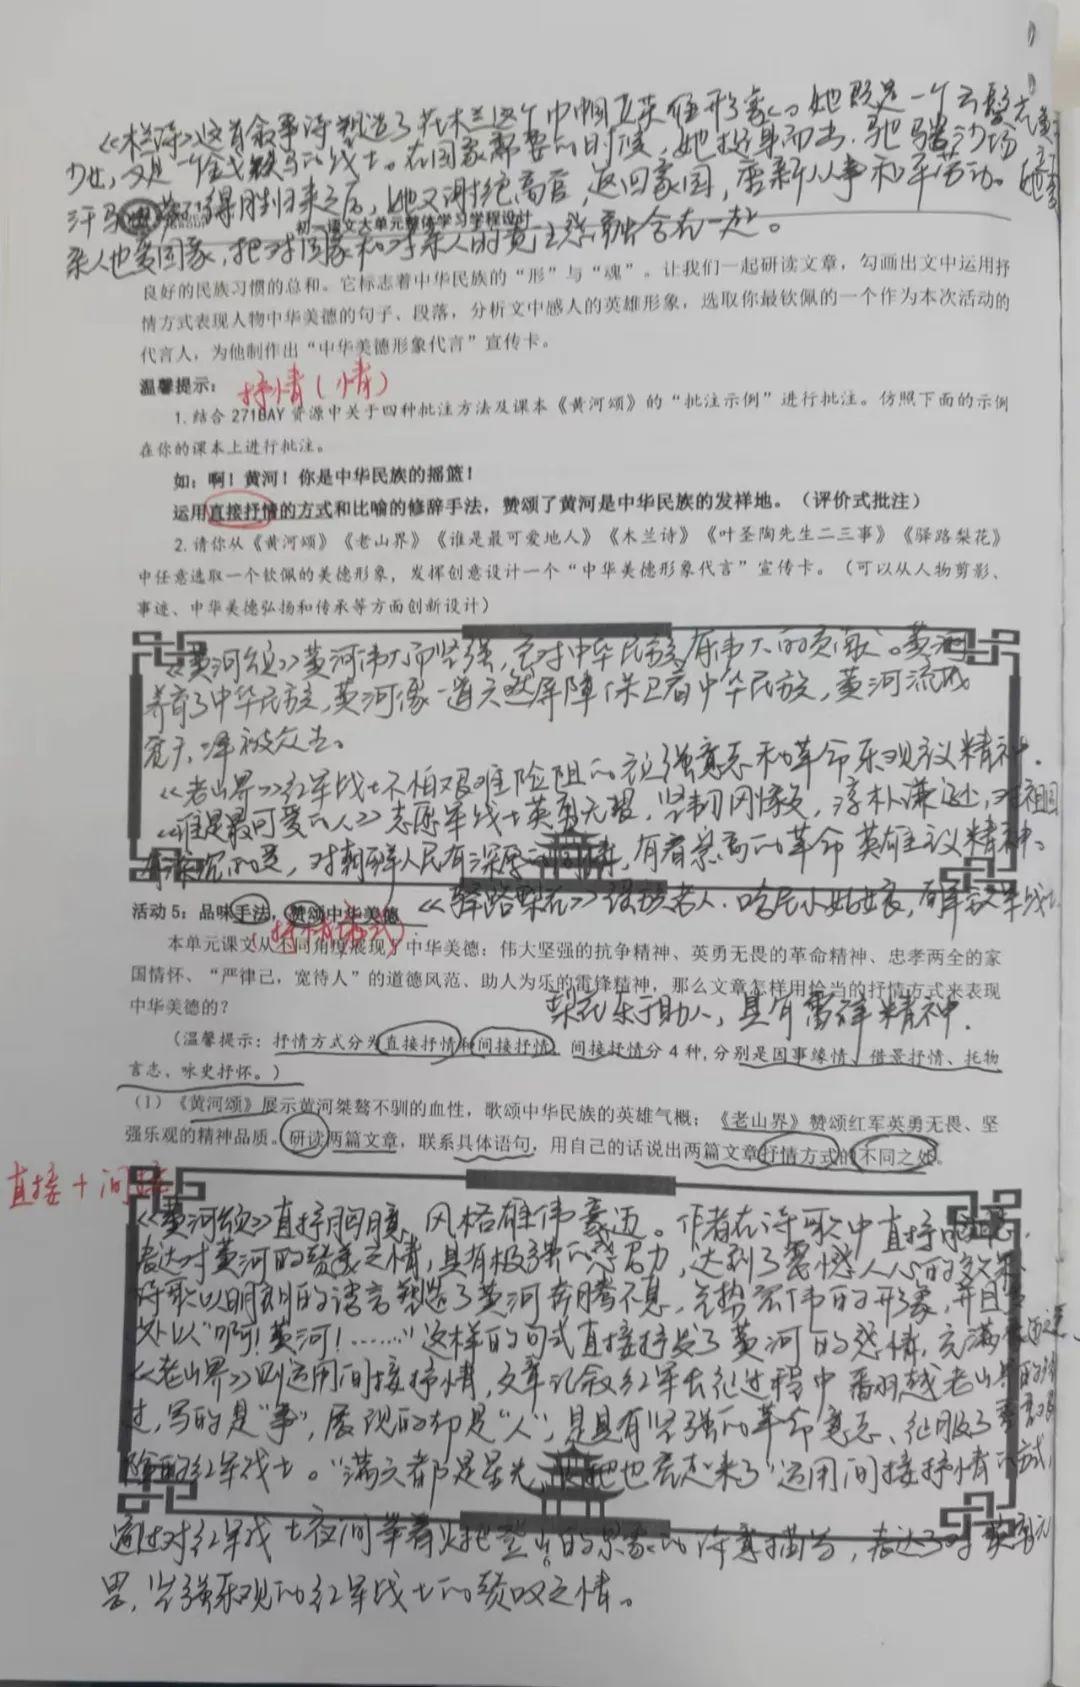 《木兰诗》这首叙事诗塑造了花木兰这个巾帼英雄形象。她既是一个云鬓花黄
少女，又是一个金戈铁马的战士。在国家需要的时候，她挺身而出，驰骋沙场
汗马功劳。得胜归来之后，她又谢绝高官，返回家园，重新从事和平劳动。她
初一语文大单元整体学习学程设计
亲人也爱国家，把对国家和对亲人的责任感融合在一起。
良好的民族习惯的总和。它标志着中华民族的“形”与“魂”。让我们一起研读文章，勾画出文中运用抒
情方式表现人物中华美德的句子、段落，分析文中感人的英雄形象，选取你最钦佩的一个作为本次活动的
代言人，为他制作出“中华美德形象代言”宣传卡。
温馨提示：
抒情（情）
1. 结合 271BAY 资源中关于四种批注方法及课本《黄河颂》的“批注示例”进行批注。仿照下面的示例
在你的课本上进行批注。
如：啊！黄河！你是中华民族的摇篮！
运用直接抒情的方式和比喻的修辞手法，赞颂了黄河是中华民族的发祥地。（评价式批注）
2. 请你从《黄河颂》《老山界》《谁是最可爱地人》《木兰诗》《叶圣陶先生二三事》《驿路梨花》
中任意选取一个钦佩的美德形象，发挥创意设计一个“中华美德形象代言”宣传卡。（可以从人物剪影、
事迹、中华美德弘扬和传承等方面创新设计）
《黄河颂》黄河伟大而坚强，它对中华民族有伟大的贡献。黄河
养育了中华民族，黄河像一道天然屏障保卫着中华民族，黄河流域
宽大，泽被众生。
《老山界》红军战士不怕艰难险阻的顽强意志和革命乐观主义精神．
《谁是最可爱的人》志愿军战士英勇无畏，坚韧刚毅，淳朴谦逊，对祖国
有深沉的爱，对朝鲜人民有深厚的同情，有着崇高的革命英雄主义精神。
《驿路梨花》瑶族老人．哈尼小姑娘，解放军战士
活动 5：品味手法，赞颂中华美德
（抒情方式）
本单元课文从不同角度展现了中华美德：伟大坚强的抗争精神、英勇无畏的革命精神、忠孝两全的家
国情怀、“严律己，宽待人”的道德风范、助人为乐的雷锋精神，那么文章怎样用恰当的抒情方式来表现
中华美德的？
梨花乐于助人，具有雷锋精神．
（温馨提示：抒情方式分为直接抒情和间接抒情，间接抒情分 4 种，分别是因事缘情、借景抒情、托物
言志、咏史抒怀。）
（1）《黄河颂》展示黄河桀骜不驯的血性，歌颂中华民族的英雄气概；《老山界》赞颂红军英勇无畏、坚
强乐观的精神品质。研读两篇文章，联系具体语句，用自己的话说出两篇文章抒情方式的不同之处。
直接＋间接
《黄河颂》直抒胸臆，风格雄伟豪迈。作者在诗歌中直抒胸臆，
表达对黄河的赞美之情，具有极强的感召力，达到了震撼人心的效果
诗歌以明朗的语言塑造了黄河奔腾不息，气势宏伟的形象，并且
处以“啊！黄河！……”这样的句式直接抒发了黄河的感情，充满
《老山界》则运用间接抒情，文章记叙红军长征过程中翻越老山界的经
过，写的是“事”，展现的却是“人”，是具有坚强的革命意志、征服了
险的红军战士。“满天都是星光，火把也亮起来了”运用间接抒情的方式，
通过对红军战士夜间举着火把登山的景象的诗意描写，表达了对英勇无
畏，坚强乐观的红军战士的赞叹之情。